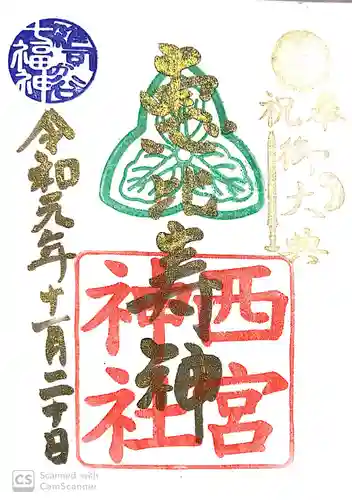 奉祝
御大典
恵比寿神
西宮
神社
七福神
令和元年十一月二十日
CS Scanned with
CamScanner